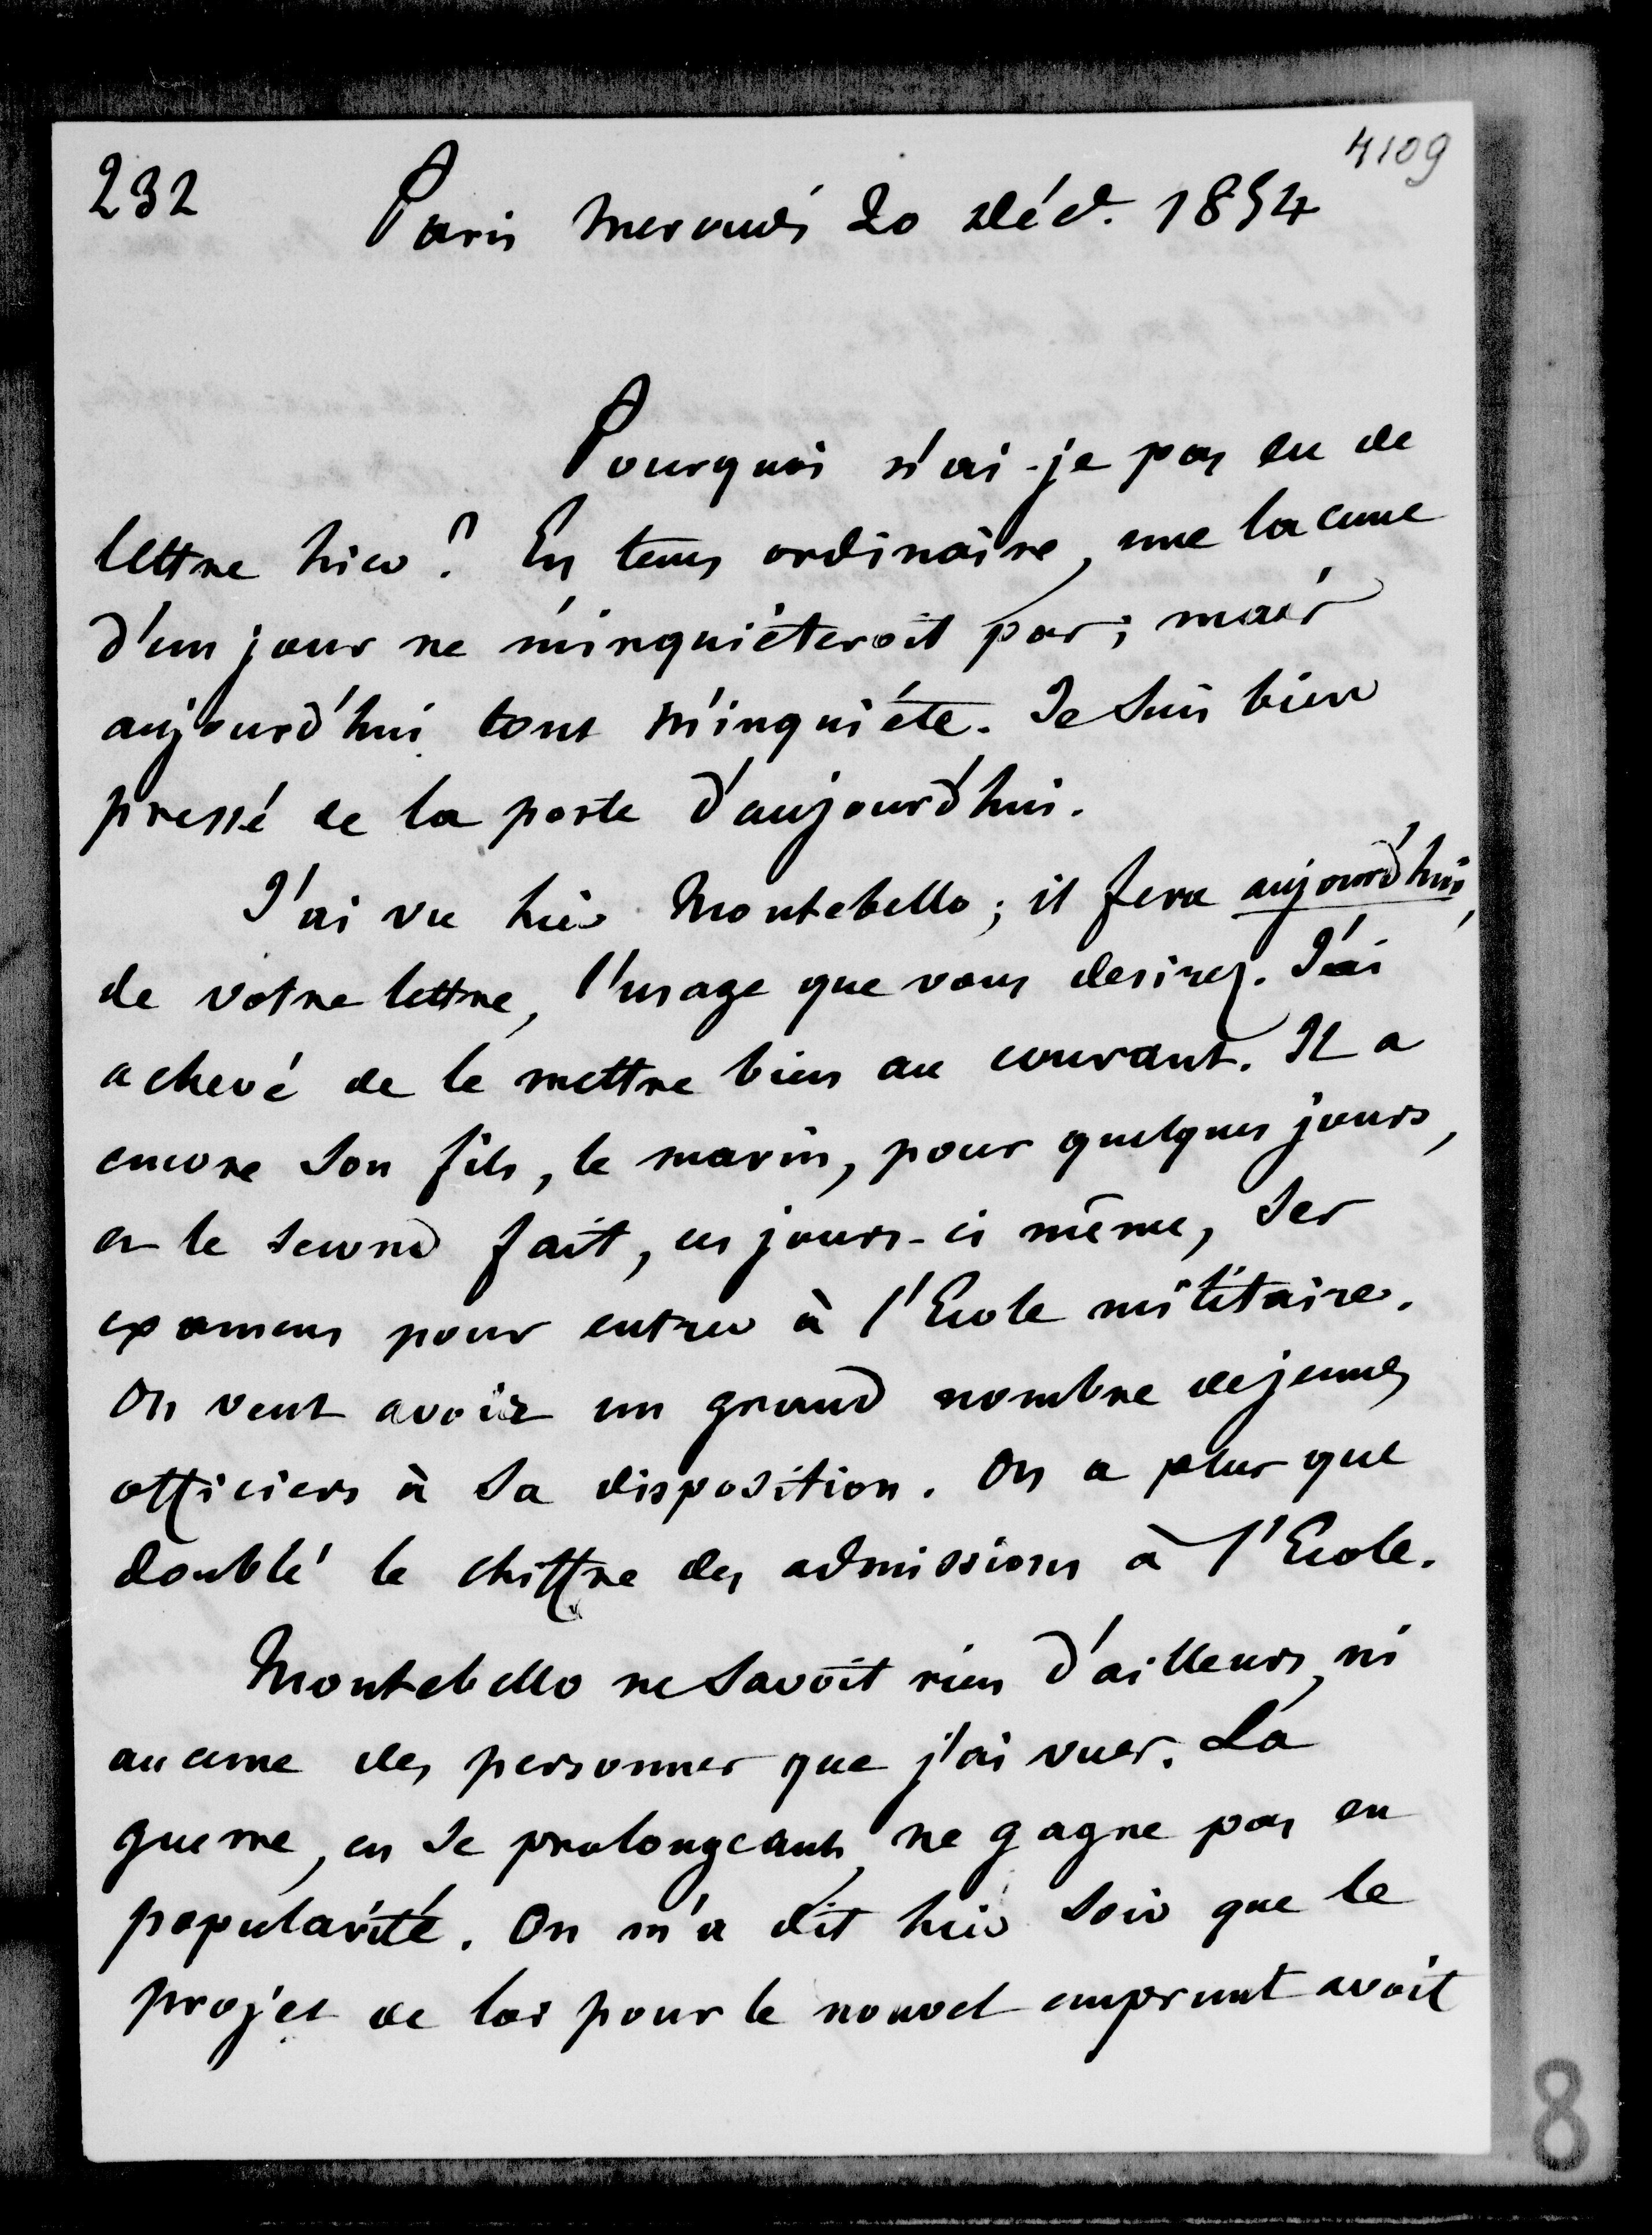 4109
232 Paris Mercredi 20 Déc. 1854
Pourquoi n'ai-je pas eu de
lettre hier ? En tems ordinaire, une lacune
d'un jour ne m'inquièteroit pas ; mais
aujourd'hui tout m'inquiéte. Je suis bien
pressé de la poste d'aujourd'hui.
J'ai vu hier Montebello ; il fera aujourd'hui,
de votre lettre, l'usage que vous desirez. J'ai
achevé de le mettre bien au courant. Il a
encore son fils, le marin, pour quelques jours,
et le second fait, ces jours-ci même, ses
examens pour entrer à l'Ecole militaire.
On veut avoir un grand nombre de jeunes
officiers à sa disposition. On a plus que
doublé le chiffre des admissions à l'Ecole.
Montebello ne savoit rien d'ailleurs, ni
aucune des personnes que j'ai vues. La
guerre, en se prolongeant, ne gagne pas en
popularité. On m'a dit hier soir que le
projet de loi pour le nouvel emprunt avoit
8